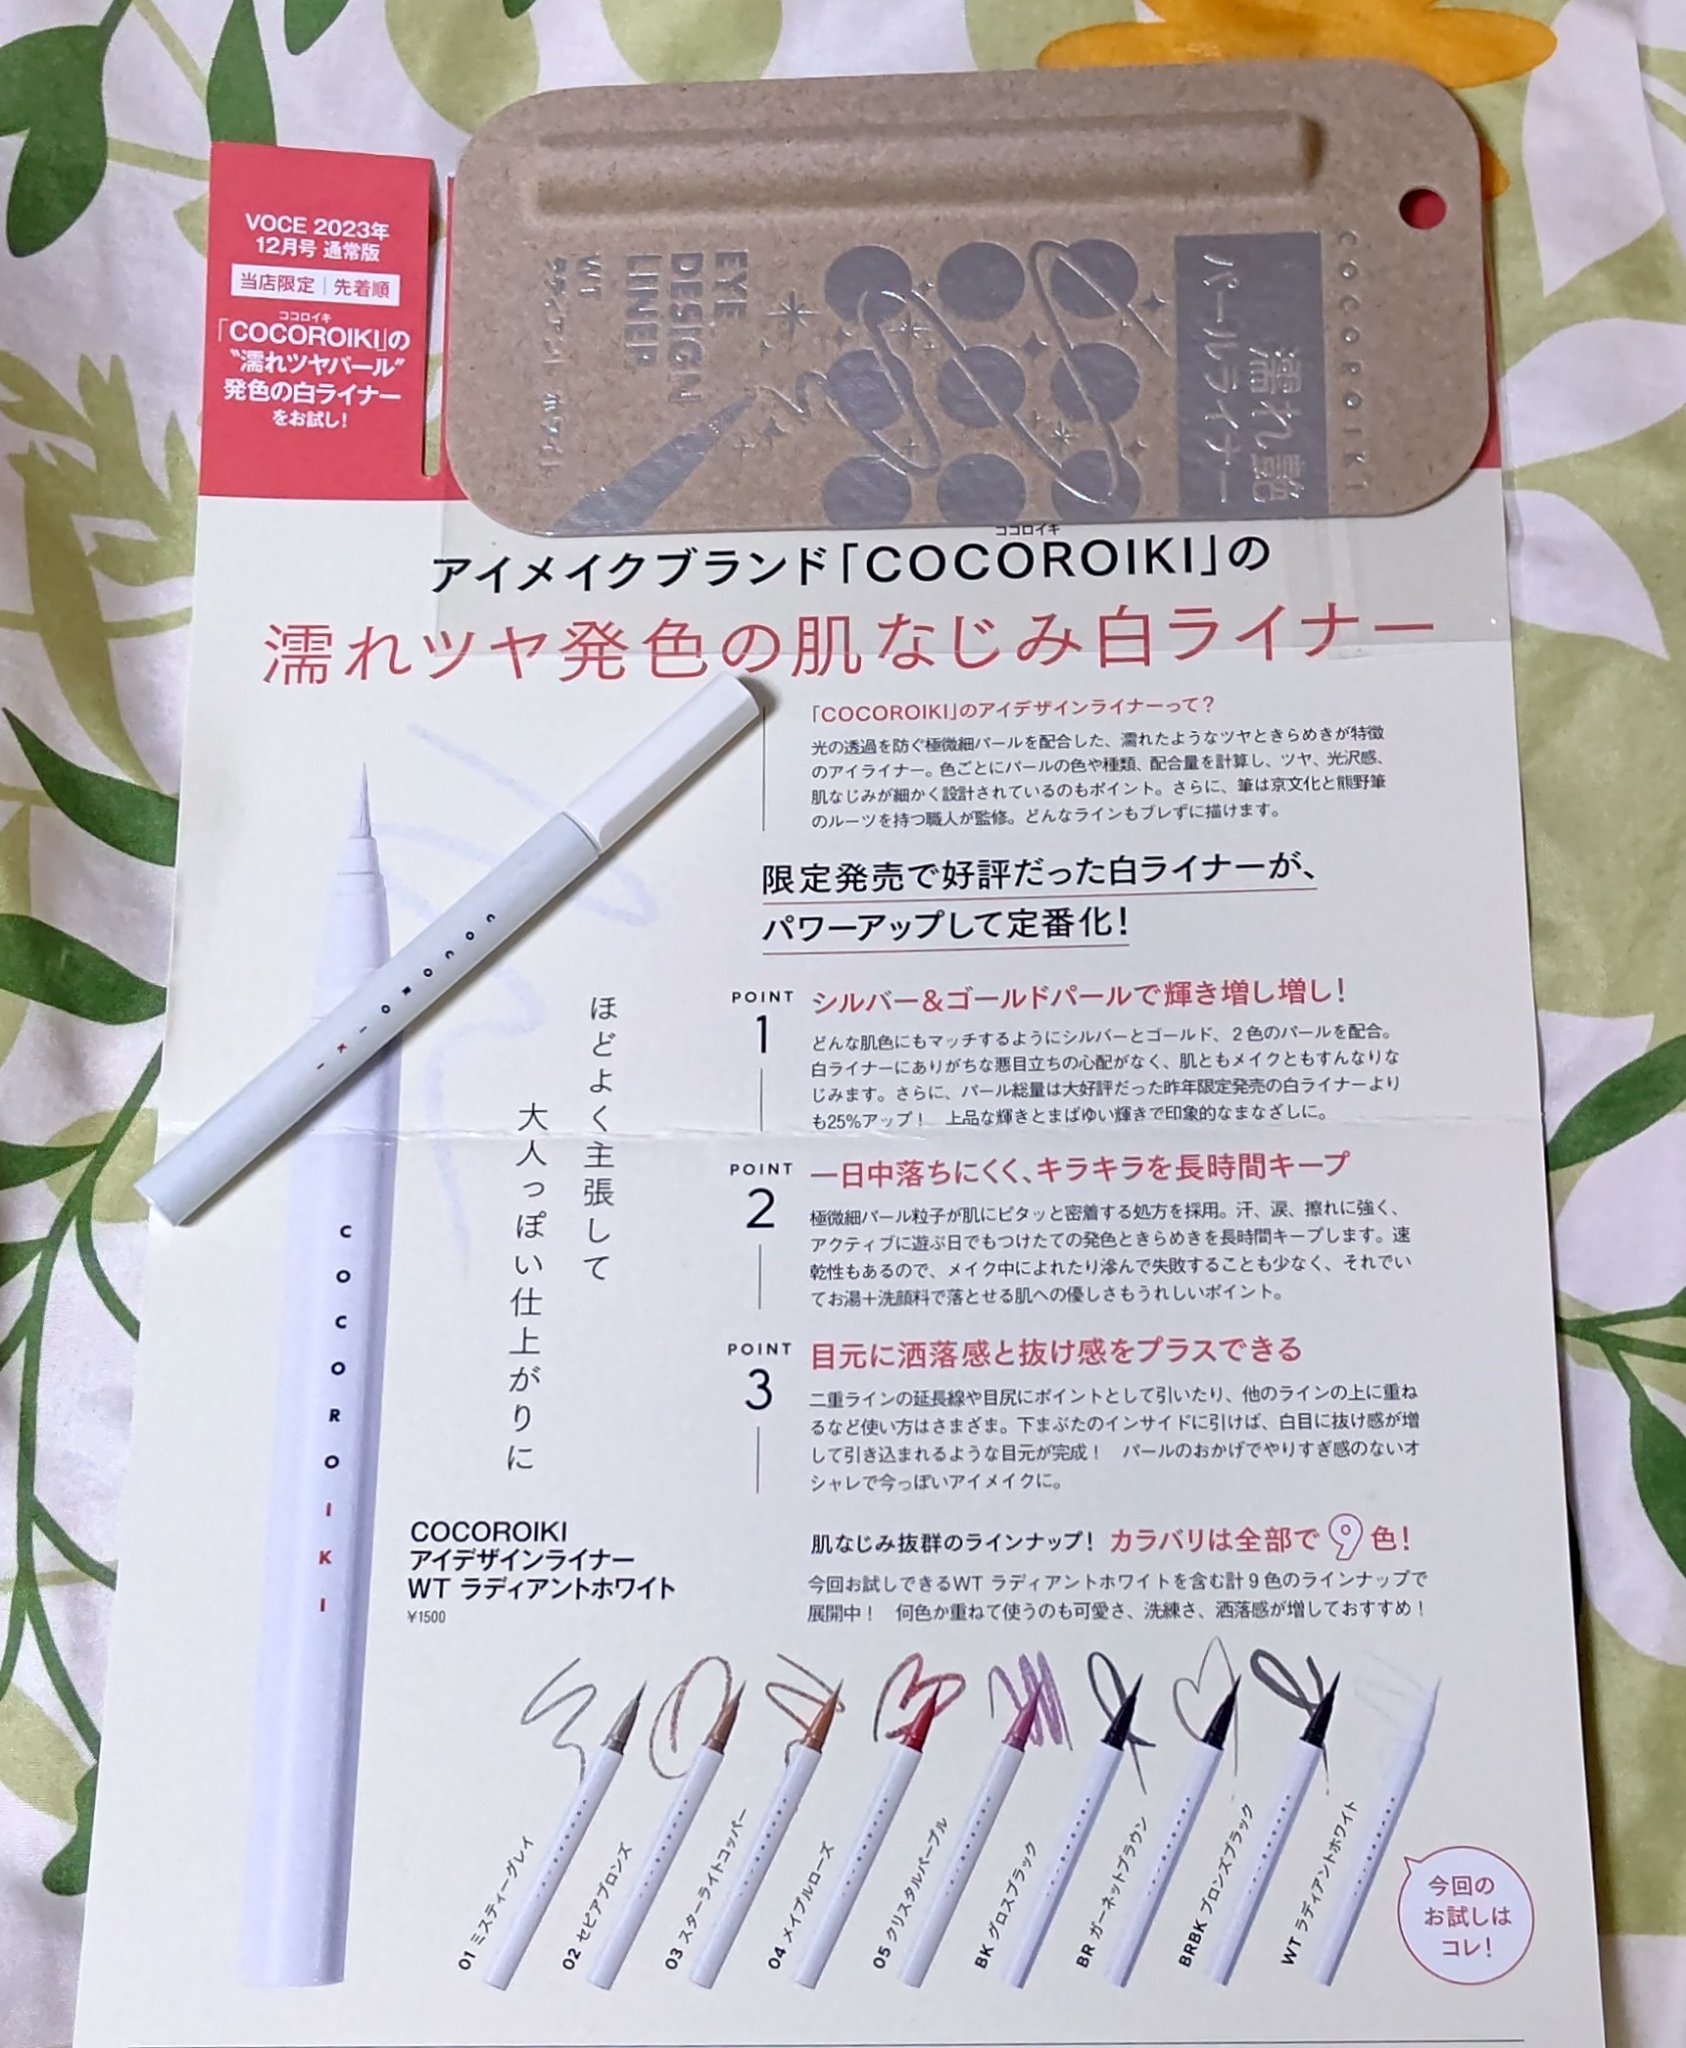 VOCE 2023年
12月号 通常版
当店限定｜先着順
ココロイキ
「COCOROIKI」の
“濡れツヤパール”
発色の白ライナー
をお試し!
COCOROIKI
濡れ艶
パールライナー
EYE
DESIGN
LINER
WT
ラディアントホワイト
ココロイキ
アイメイクブランド「COCOROIKI」の
濡れツヤ発色の肌なじみ白ライナー
「COCOROIKI」のアイデザインライナーって?
光の透過を防ぐ極微細パールを配合した、濡れたようなツヤときらめきが特徴
のアイライナー。色ごとにパールの色や種類、配合量を計算し、ツヤ、光沢感、
肌なじみが細かく設計されているのもポイント。さらに、筆は京文化と熊野筆
のルーツを持つ職人が監修。どんなラインもブレずに描けます。
限定発売で好評だった白ライナーが、
パワーアップして定番化!
POINT
1
シルバー&ゴールドパールで輝き増し増し!
どんな肌色にもマッチするようにシルバーとゴールド、2色のパールを配合。
白ライナーにありがちな悪目立ちの心配がなく、肌ともメイクともすんなりな
じみます。さらに、パール総量は大好評だった昨年限定発売の白ライナーより
も25%アップ! 上品な輝きとまばゆい輝きで印象的なまなざしに。
POINT
2
一日中落ちにくく、キラキラを長時間キープ
極微細パール粒子が肌にピタッと密着する処方を採用。汗、涙、擦れに強く、
アクティブに遊ぶ日でもつけたての発色ときらめきを長時間キープします。速
乾性もあるので、メイク中によれたり滲んで失敗することも少なく、それでい
てお湯+洗顔料で落とせる肌への優しさもうれしいポイント。
POINT
3
目元に洒落感と抜け感をプラスできる
二重ラインの延長線や目尻にポイントとして引いたり、他のラインの上に重ね
るなど使い方はさまざま。下まぶたのインサイドに引けば、白目に抜け感が増
して引き込まれるような目元が完成! パールのおかげでやりすぎ感のないオ
シャレで今っぽいアイメイクに。
ほどよく主張して
大人っぽい仕上がりに
COCOROIKI
COCOROIKI
COCOROIKI
アイデザインライナー
WT ラディアントホワイト
¥1500
肌なじみ抜群のラインナップ! カラバリは全部で9色!
今回お試しできるWT ラディアントホワイトを含む計9色のラインナップで
展開中! 何色か重ねて使うのも可愛さ、洗練さ、洒落感が増しておすすめ!
01 ミスティーグレイ
02 セピアブロンズ
03 スターライトコッパー
04 メイプルローズ
05 クリスタルパープル
BK グロスブラック
BR ガーネットブラウン
BRBK ブロンズブラック
WT ラディアントホワイト
今回の
お試しは
コレ!